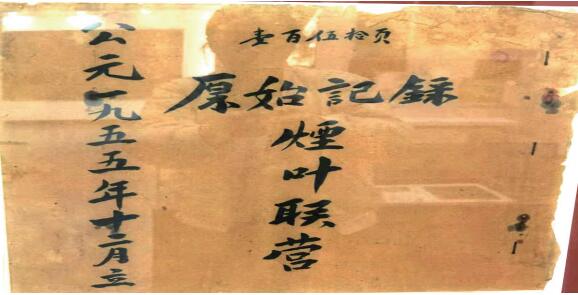 壹百伍拾页
原始記錄
煙叶联营
公元一九五五年十二月立